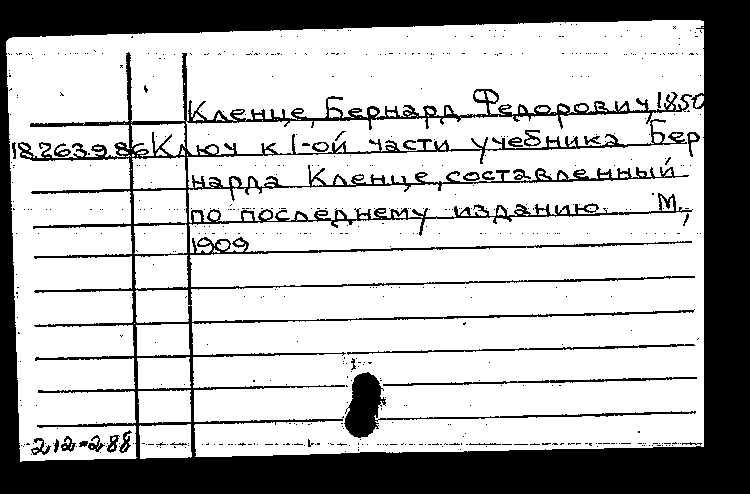 Кленце, Бернард Федорович, 1850
18.263.9.86 Ключ к I-ой части учебника Бер-
нарда Кленце, составленный
по последнему изданию. М.,
1909
212-288